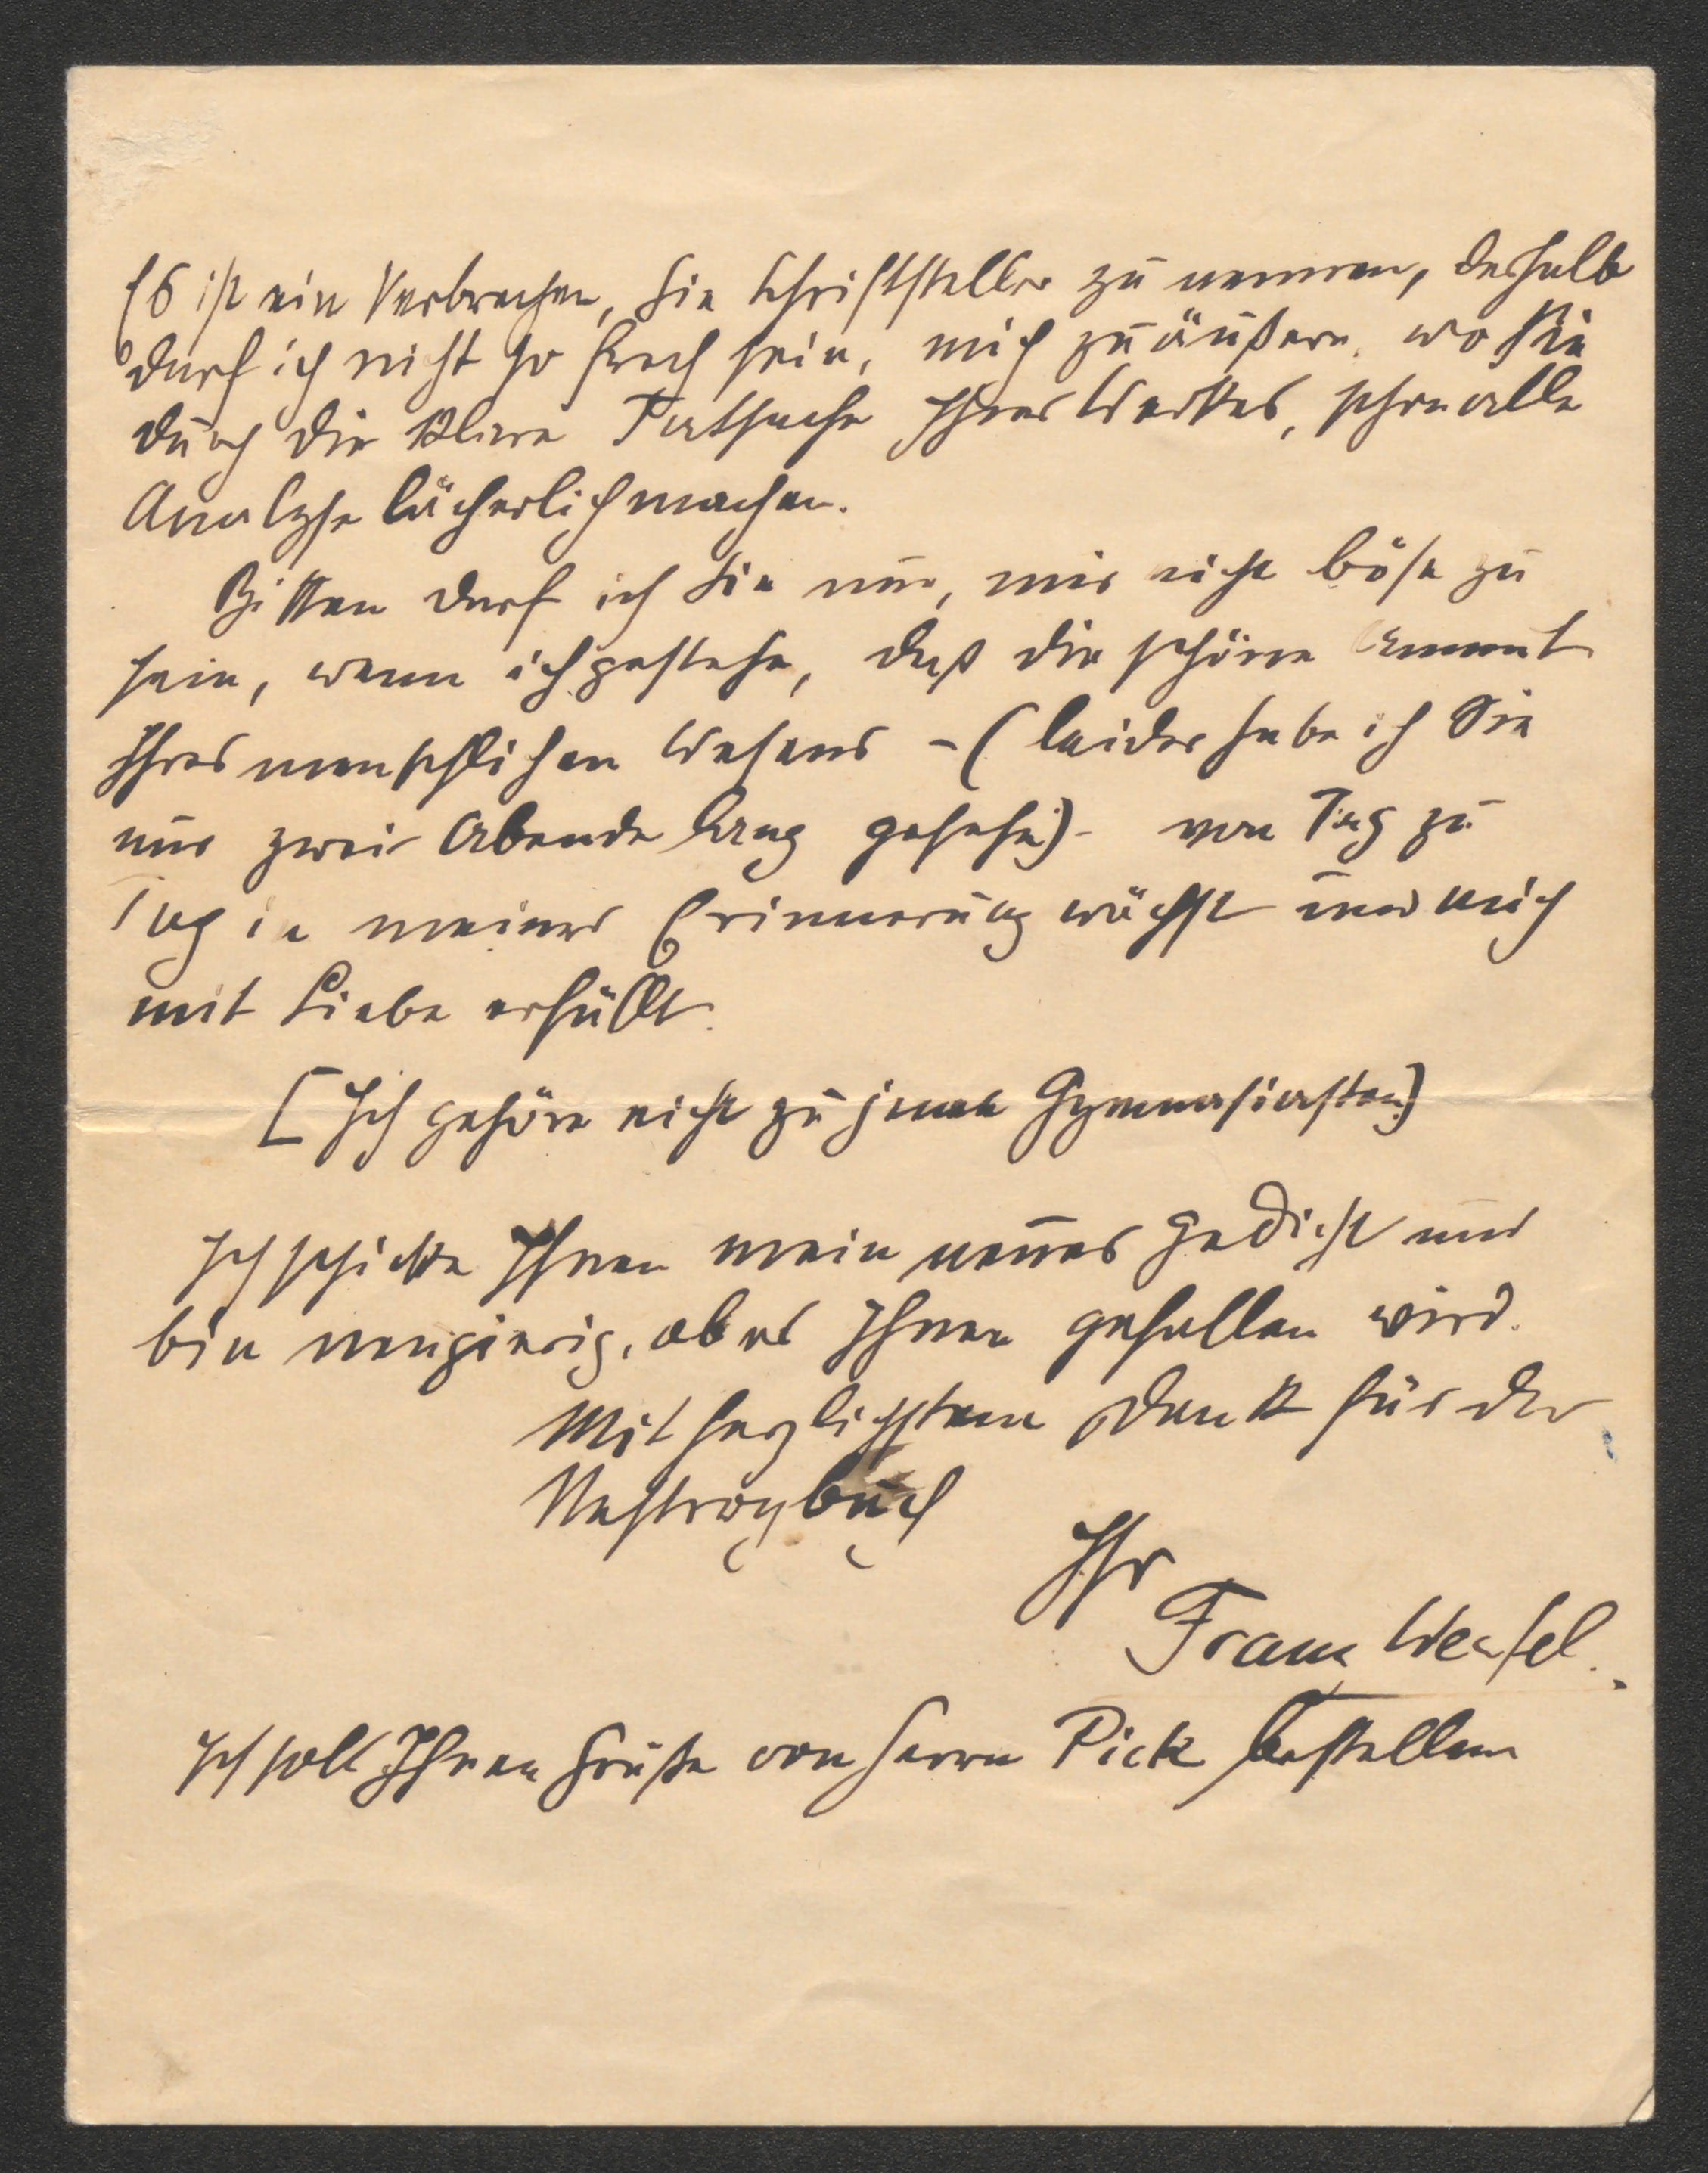 Es ist ein Verbrechen, Sie Schriftsteller zu nennen, deshalb
darf ich nicht so frech sein, mich zu äußern, wo Sie
durch die klare Tatsache Ihres Werkes, schon alle
Analyse lächerlich machen.
Bitten darf ich Sie nur, mir nicht böse zu
sein, wenn ich gestehe, daß die schöne Anmut
Ihres menschlichen Wesens – (leider habe ich Sie
nur zwei Abende lang gesehn) – von Tag zu
Tag in meiner Erinnerung wächst und mich
mit Liebe erfüllt.
[Ich gehöre nicht zu jenen Gymnasiasten]
Ich schicke Ihnen mein neues Gedicht und
bin neugierig, ob es Ihnen gefallen wird.
Mit herzlichstem Dank für das
Nestroybuch
Ihr
Franz Werfel.
Ich soll Ihnen Grüße von Herrn Pick bestellen